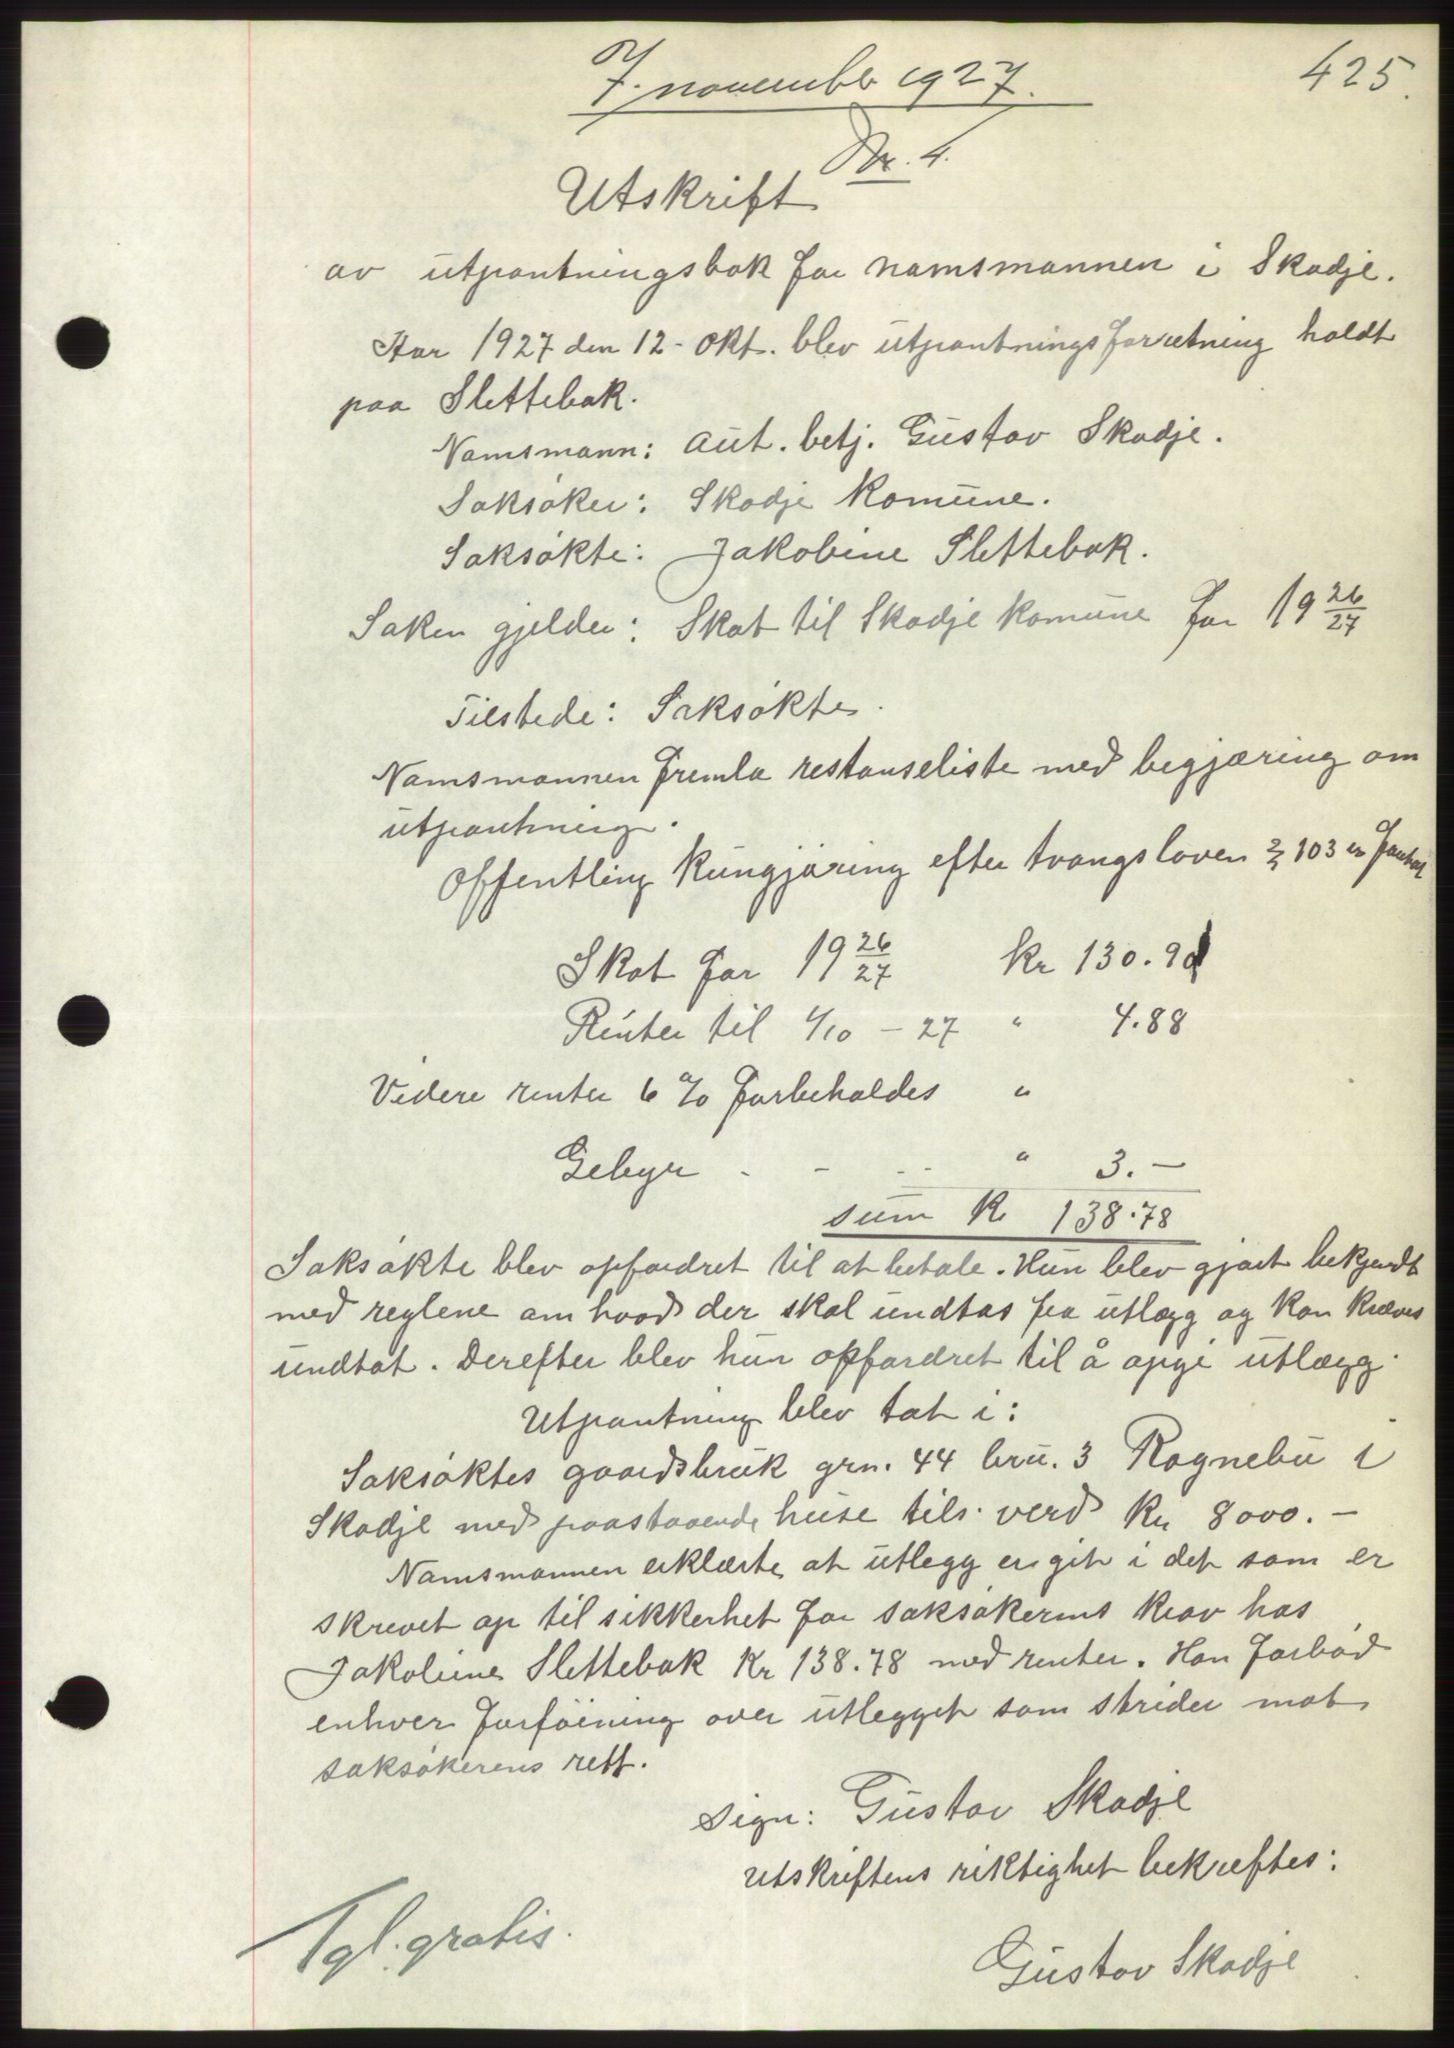 7. november 1927.
425.
Nr. 4.
Utskrift
av utpantningsbok for namsmannen i Skodje.
Aar 1927 den 12 - okt. blev utpantningsforretning holdt
paa Slettebak.
Namsmann: aut. betj. Gustav Skodje.
Saksøker: Skodje Komune.
Saksøkte: Jakobine Slettebak.
Saken gjelder: Skat til Skodje Komune for 19 26/27
Tilstede: Saksøkte.
Namsmannen fremla restanseliste med begjæring om
utpantning.
Offentling kungjøring efter tvangsloven § 103 er
Skat for 19 26/27 Kr 130.90
Renter til 1/10 - 27 " 4.88
Videre renter 6 % forbeholdes "
Gebyr - - - " 3.-
sum Kr 138.78
Saksøkte blev opfordret til at betale. Hun blev gjort bekjendt
med reglene om hvad der skal undtas fra utlegg og kan kræves
undtat. Derefter blev hun opfordret til å opgi utlægg.
Utpantning blev tat i:
Saksøktes gaardsbruk grn. 44 bru. 3 Rognebu i
Skodje med paastaaende huse tils. verd Kr 8000.-
Namsmannen erklærte at utlegg er git i det som er
skrevet op til sikkerhet for saksøkerens krav hos
Jakobine Slettebak Kr 138.78 med renter. Han forbød
enhver forføining over utlegget som strider mot
saksøkerens rett.
Sign: Gustav Skodje
Utskriftens riktighet bekreftes:
Tgl. gratis.
Gustav Skodje